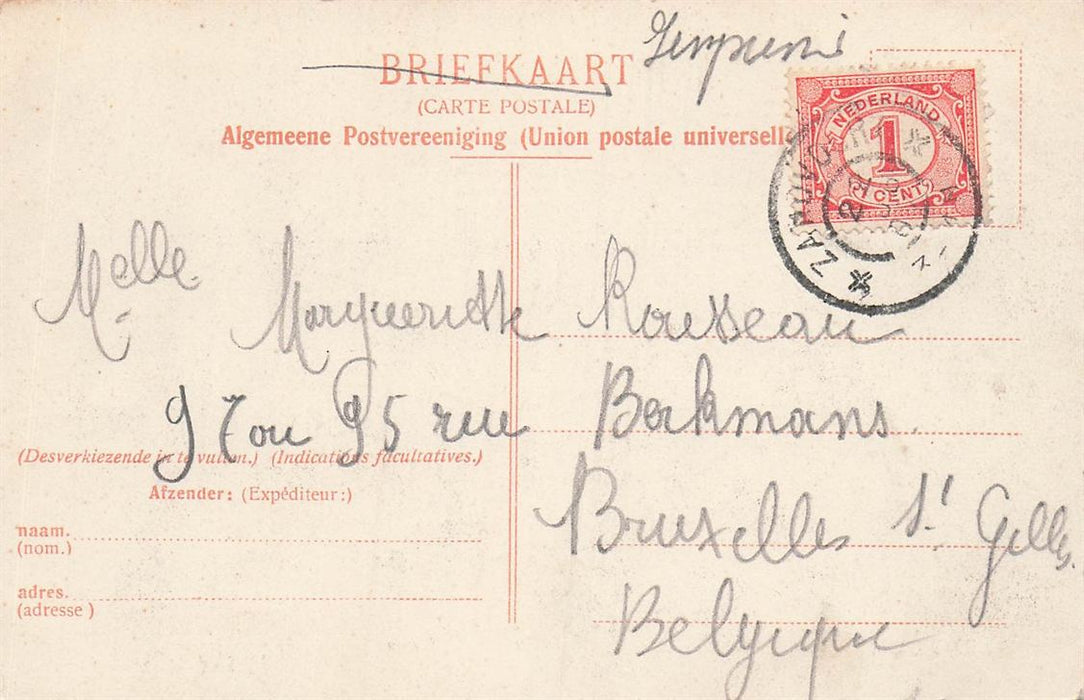 BRIEFKAART
(CARTE POSTALE)
Algemeene Postvereeniging (Union postale universell
NEDERLAND
1
CENT
Melle Marguerite Rousseau
97 ou 95 rue Berkmans.
Bruxelles St Gilles
Belgique
(Desverkiezende in te vullen.) (Indications facultatives.)
Afzender: (Expéditeur:)
naam.
(nom.)
adres.
(adresse)